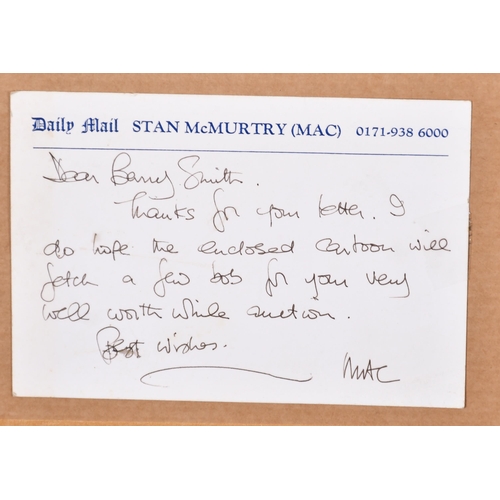 Daily Mail STAN McMURTRY (MAC) 0171-938 6000
Dear Barry Smith.
Thanks for your letter. I
do hope the enclosed cartoon will
fetch a few bob for your very
well worth while auction.
Best wishes.
MAC